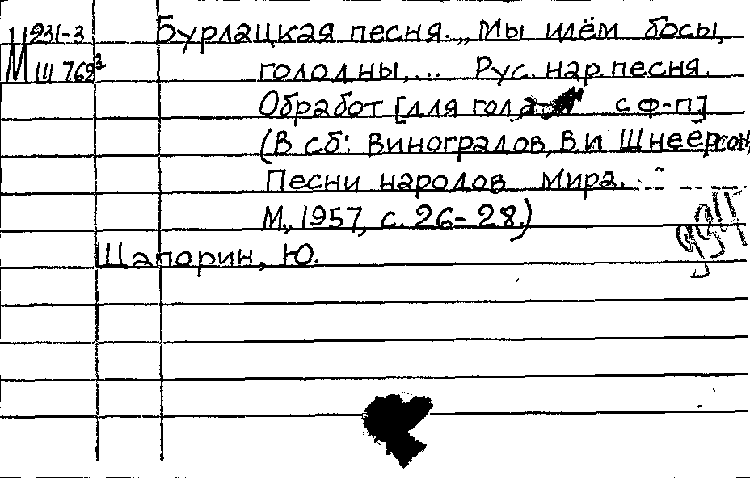 М 231-3 Бурлацкая песня. „Мы идём босы,
Ш 769³ голодны,... Рус. нар. песня.
Обработ [для гола с ф-п]
(В сб: Виноградов, В и Шнеерсон,
Песни народов мира.
М., 1957, с. 26-28.)
Шапорин, Ю.